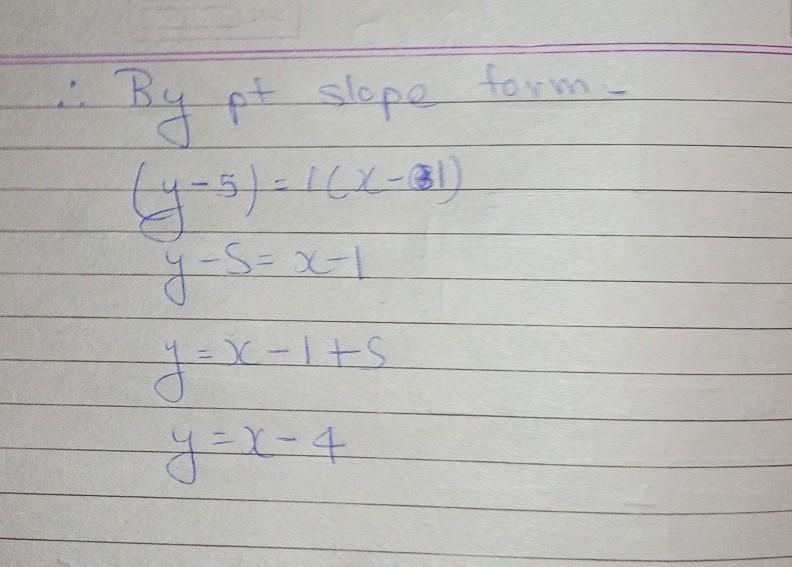 ∴ By pt slope form -
(y-5) = 1(x-1)
y-5 = x-1
y = x-1+5
y = x-4